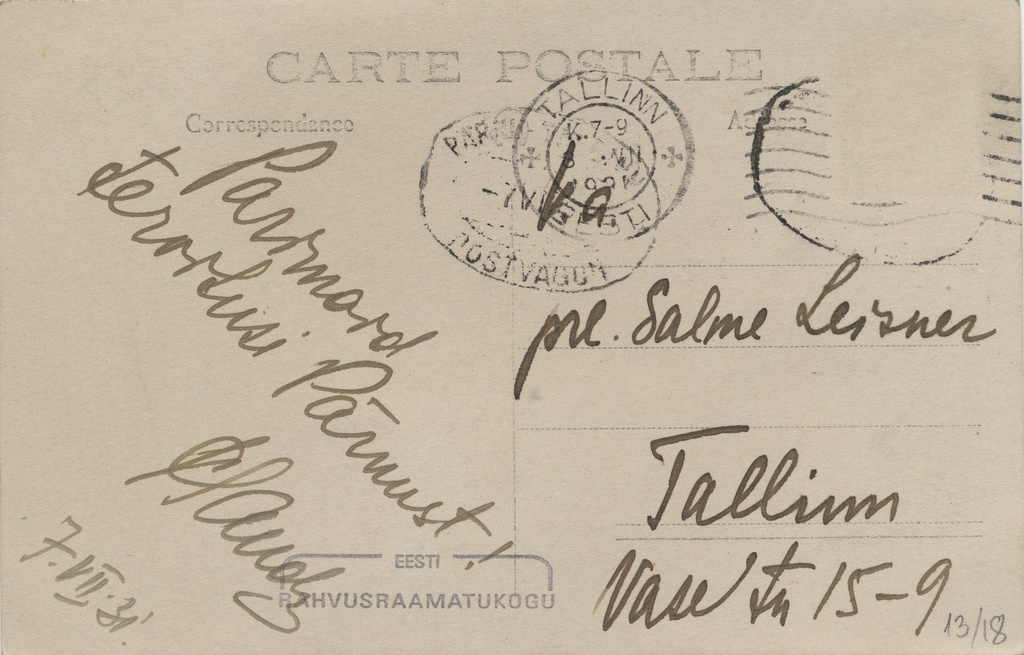 CARTE POSTALE
Correspondance
Adresse
TALLINN
K.7-9
EESTI
POSTVAGUN
Parimaid
tervitusi Pärnust!
7.VII.31.
pre. Salme Leisner
Tallinn
Vase tn 15-9
EESTI
RAHVUSRAAMATUKOGU
13/18